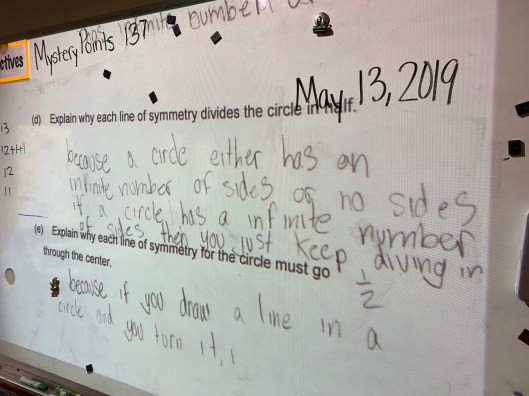 has infinite number
ctives
Mystery Points 137
May 13, 2019
(d) Explain why each line of symmetry divides the circle in half.
because a circle either has an
infinite number of sides or no sides
if a circle has a infinite number
of sides then you just keep diving in
1/2
(e) Explain why each line of symmetry for the circle must go
through the center.
because if you draw a line in a
circle and you turn it,
13
12+1+1
12
11